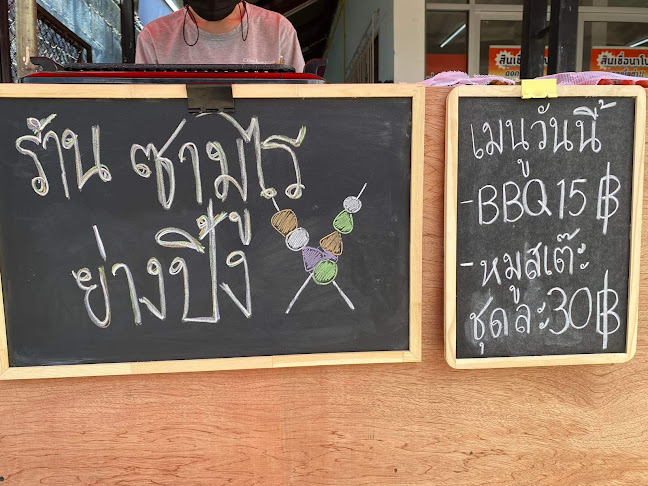 ร้าน ซามูไร
ย่างปิ้ง
เมนูวันนี้
-BBQ 15 ฿
-หมูสเต๊ะ
ชุดละ 30฿